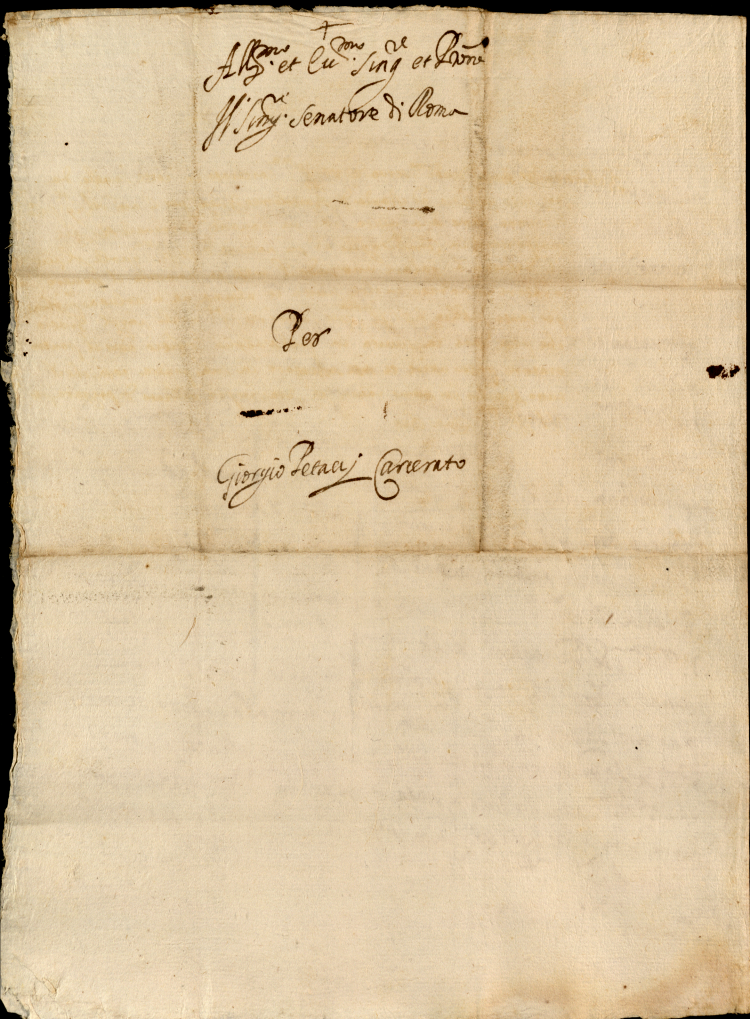 +
All^mo. et Ecc^mo. Sig^re et P̃rone
Il Sig^re. Senatore di Roma
Per
Giorgio Petacij Carcerato